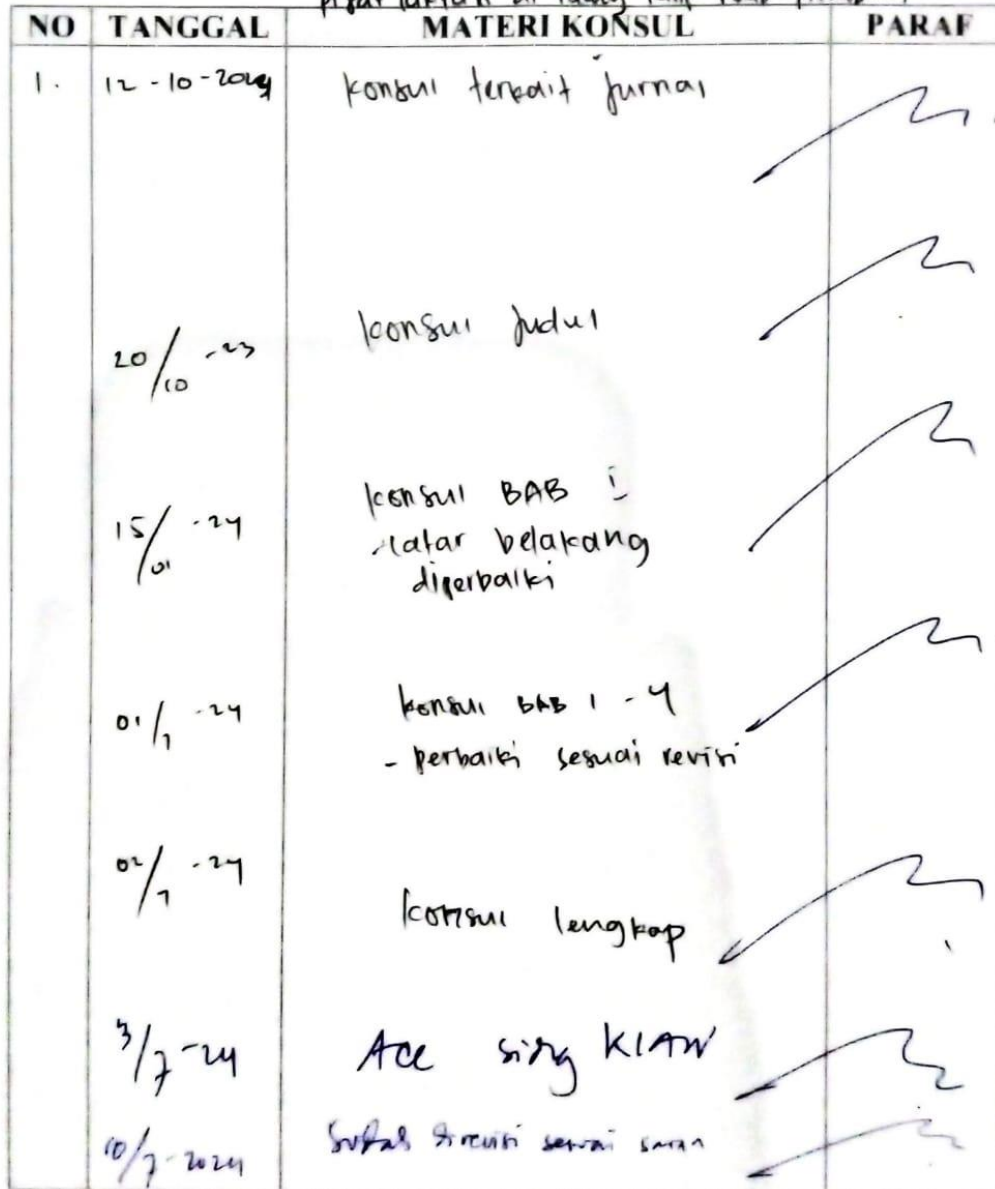 NO TANGGAL MATERI KONSUL PARAF
1. 12-10-2024 konsul terkait jurnal
20/10 -23 konsul judul
15/01 -24 konsul BAB I
- latar belakang
diperbaiki
01/7 -24 konsul BAB 1 - 4
- perbaiki sesuai revisi
02/7 -24 konsul lengkap
3/7-24 Acc sidang KIAN
10/7-2024 sudah direvisi sesuai saran